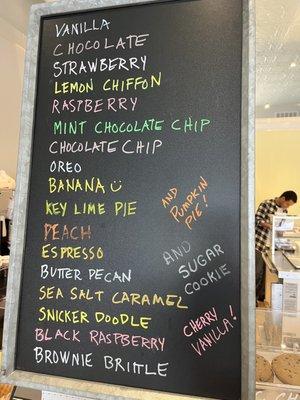 VANILLA
CHOCOLATE
STRAWBERRY
LEMON CHIFFON
RASPBERRY
MINT CHOCOLATE CHIP
CHOCOLATE CHIP
OREO
BANANA
KEY LIME PIE
PEACH
ESPRESSO
BUTTER PECAN
SEA SALT CARAMEL
SNICKER DOODLE
BLACK RASPBERRY
BROWNIE BRITTLE
AND
PUMPKIN
PIE!
AND
SUGAR
COOKIE
CHERRY
VANILLA!